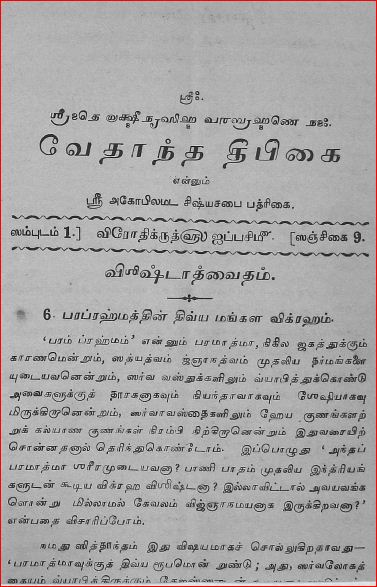 ஸ்ரீ:.
ஸ்ரீமதெ லக்ஷ்மீநரஸிஹ்ம பரப்ரஹ்மணெ நம:.
வேதாந்த தீபிகை
என்னும்
ஸ்ரீ அகோபிலமட சிஷ்யசபை பத்ரிகை.
ஸம்புடம் 1.] விரோதிக்ருத்௵ ஐப்பசி௴ [ஸஞ்சிகை 9.
விஶிஷ்டாத்வைதம்.
6. பரப்ரஹ்மத்தின் திவ்ய மங்கள விக்ரஹம்.
'பரம் ப்ரஹ்மம்' என்னும் பரமாத்மா, நிகில ஜகத்துக்கும்
காரணமென்றும், ஸத்யத்வம் ஜ்ஞாநத்வம் முதலிய தர்மங்களை
யுடையவனென்றும், ஸர்வ வஸ்துக்களிலும் வ்யாபித்துக்கொண்டு
அவைகளுக்குத் தாரகனாகவும் நியந்தாவாகவும் ஶேஷியாகவு
மிருக்கிறானென்றும், ஸர்வாவஸ்தைகளிலும் ஹேய குணங்களற்
றுக் கல்யாண குணங்கள் நிரம்பி நிற்கிறானென்றும் இதுவரையிற்
சொன்னதனால் தெரிந்துகொண்டோம். இப்பொழுது 'அந்தப்
பரமாத்மா ஶரீரமுடையவனா? பாணி பாதம் முதலிய இந்த்ரியங்
களுடன் கூடிய விக்ரஹ விஶிஷ்டனா? இல்லாவிட்டால் அவயவங்க
ளொன்று மில்லாமல் கேவலம் விஜ்ஞாநமயனாக இருக்கிறவனா?'
என்பதை விசாரிப்போம்.
நமது ஸித்தாந்தம் இது விஷயமாகச் சொல்லுகிறதாவது—
'பரமாத்மாவுக்குத் திவ்ய ரூபமொன் றுண்டு; அது, ஸர்வலோகத்